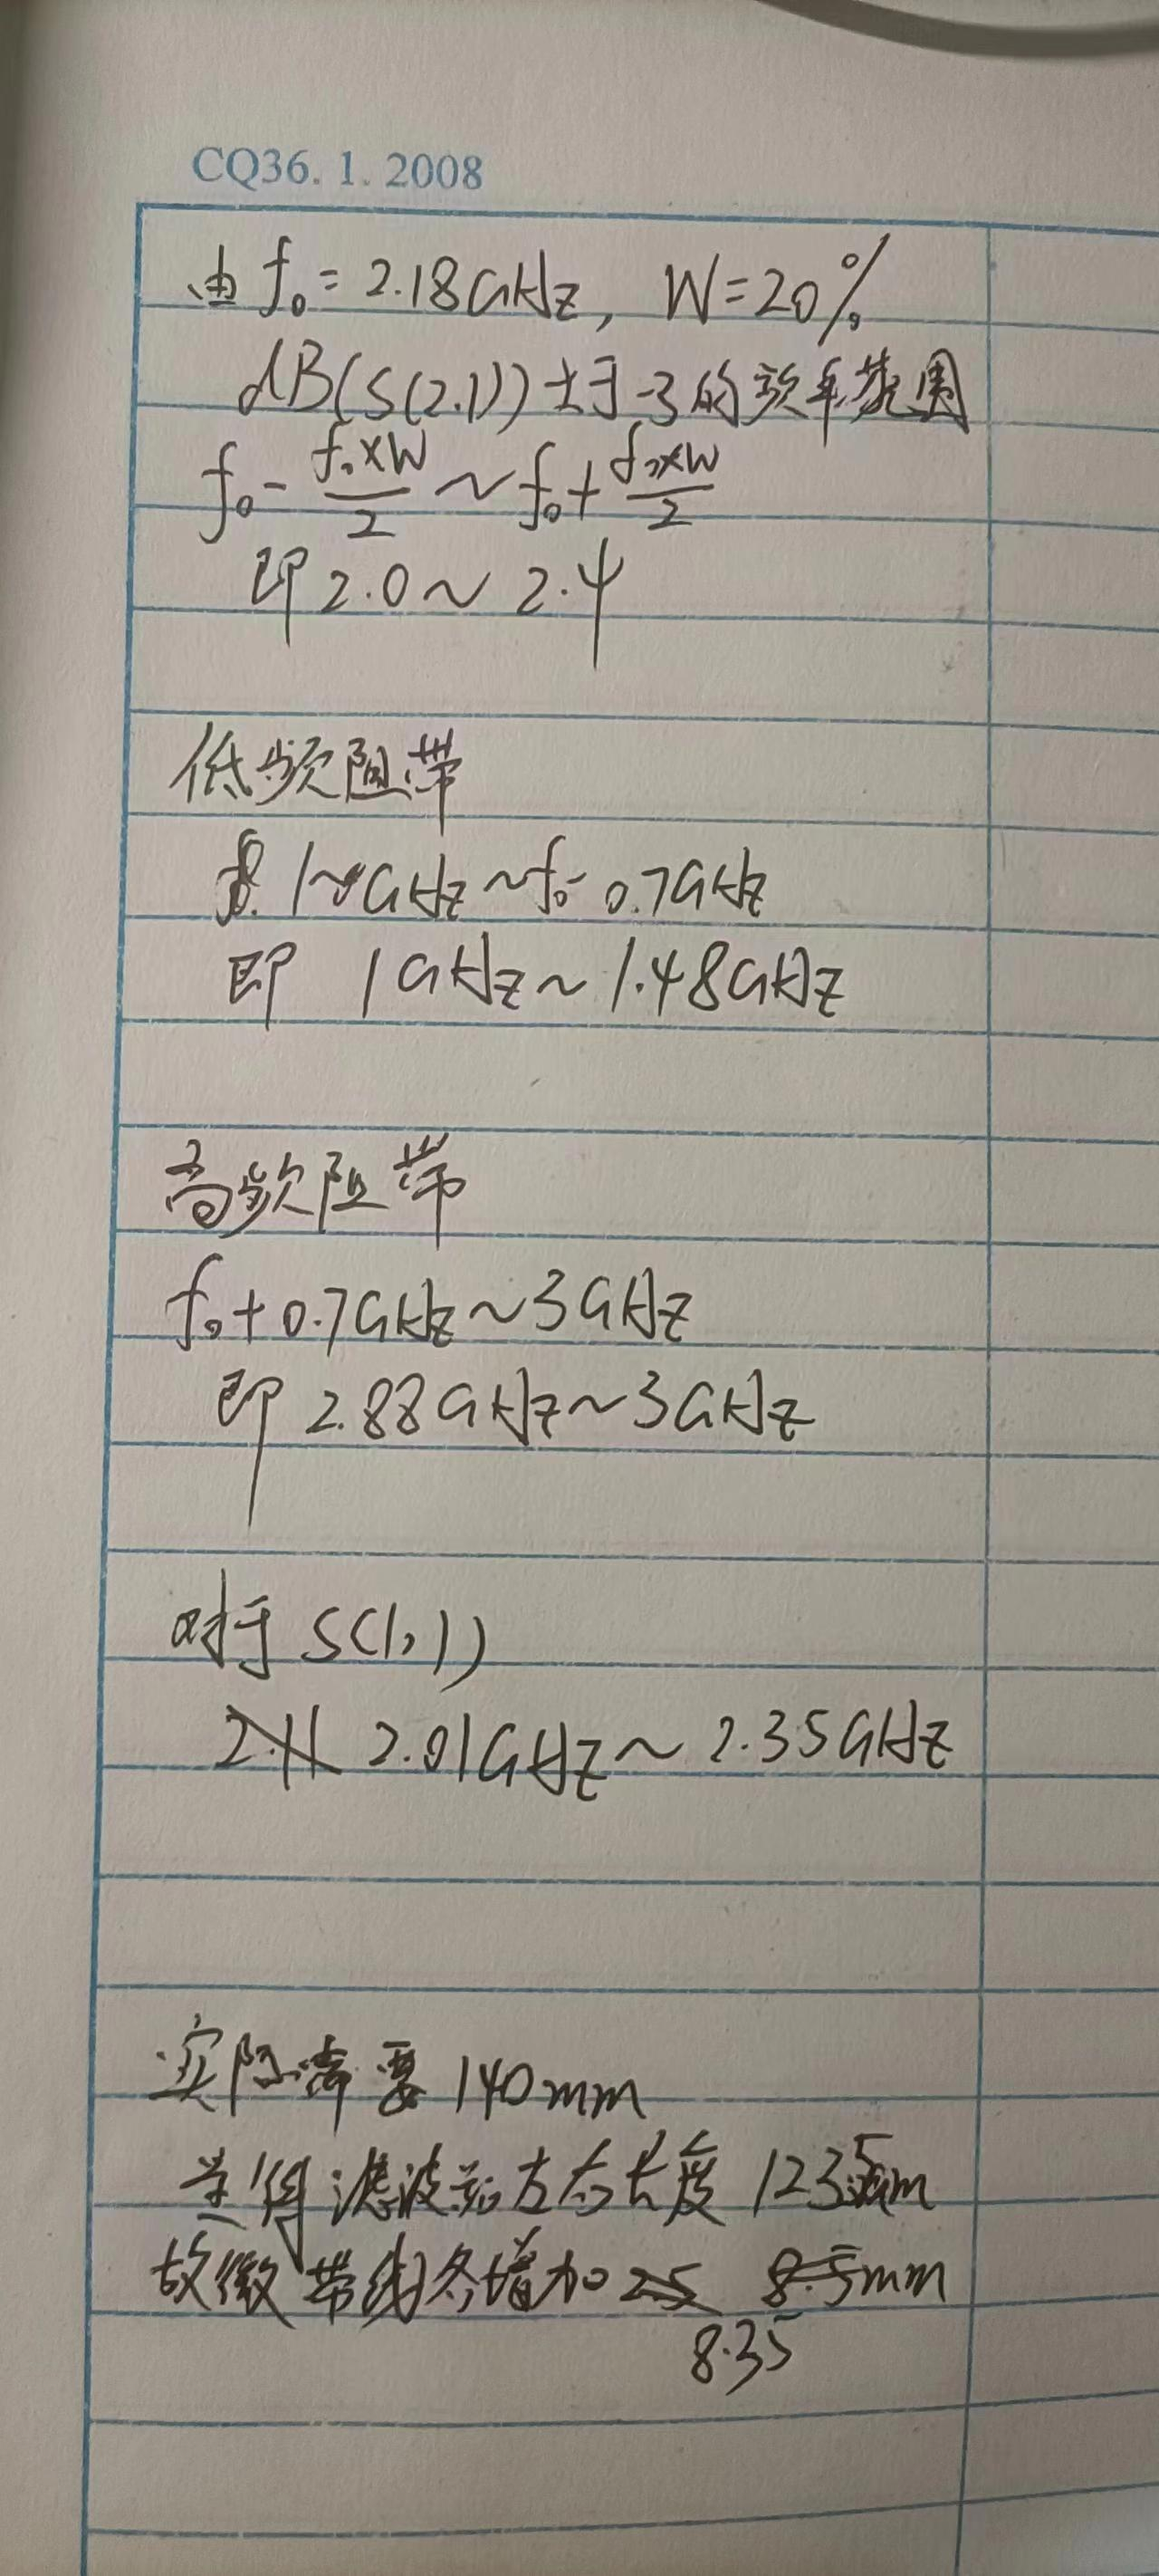 CQ36. 1. 2008
由 f₀ = 2.18GHz, W=20%
dB(S(2.1)) 大于-3的频率范围
f₀ - f₀×W/2 ~ f₀ + f₀×W/2
即 2.0 ~ 2.4
低频阻带
1 GHz ~ f₀- 0.7GHz
即 1GHz ~ 1.48GHz
高频阻带
f₀ + 0.7GHz ~ 3GHz
即 2.88GHz ~ 3GHz
对于 S(1,1)
2.11 2.01GHz ~ 2.35GHz
实际需要 140mm
滤波器 长度 123
故微带线各增加 25 8.5mm
8.35